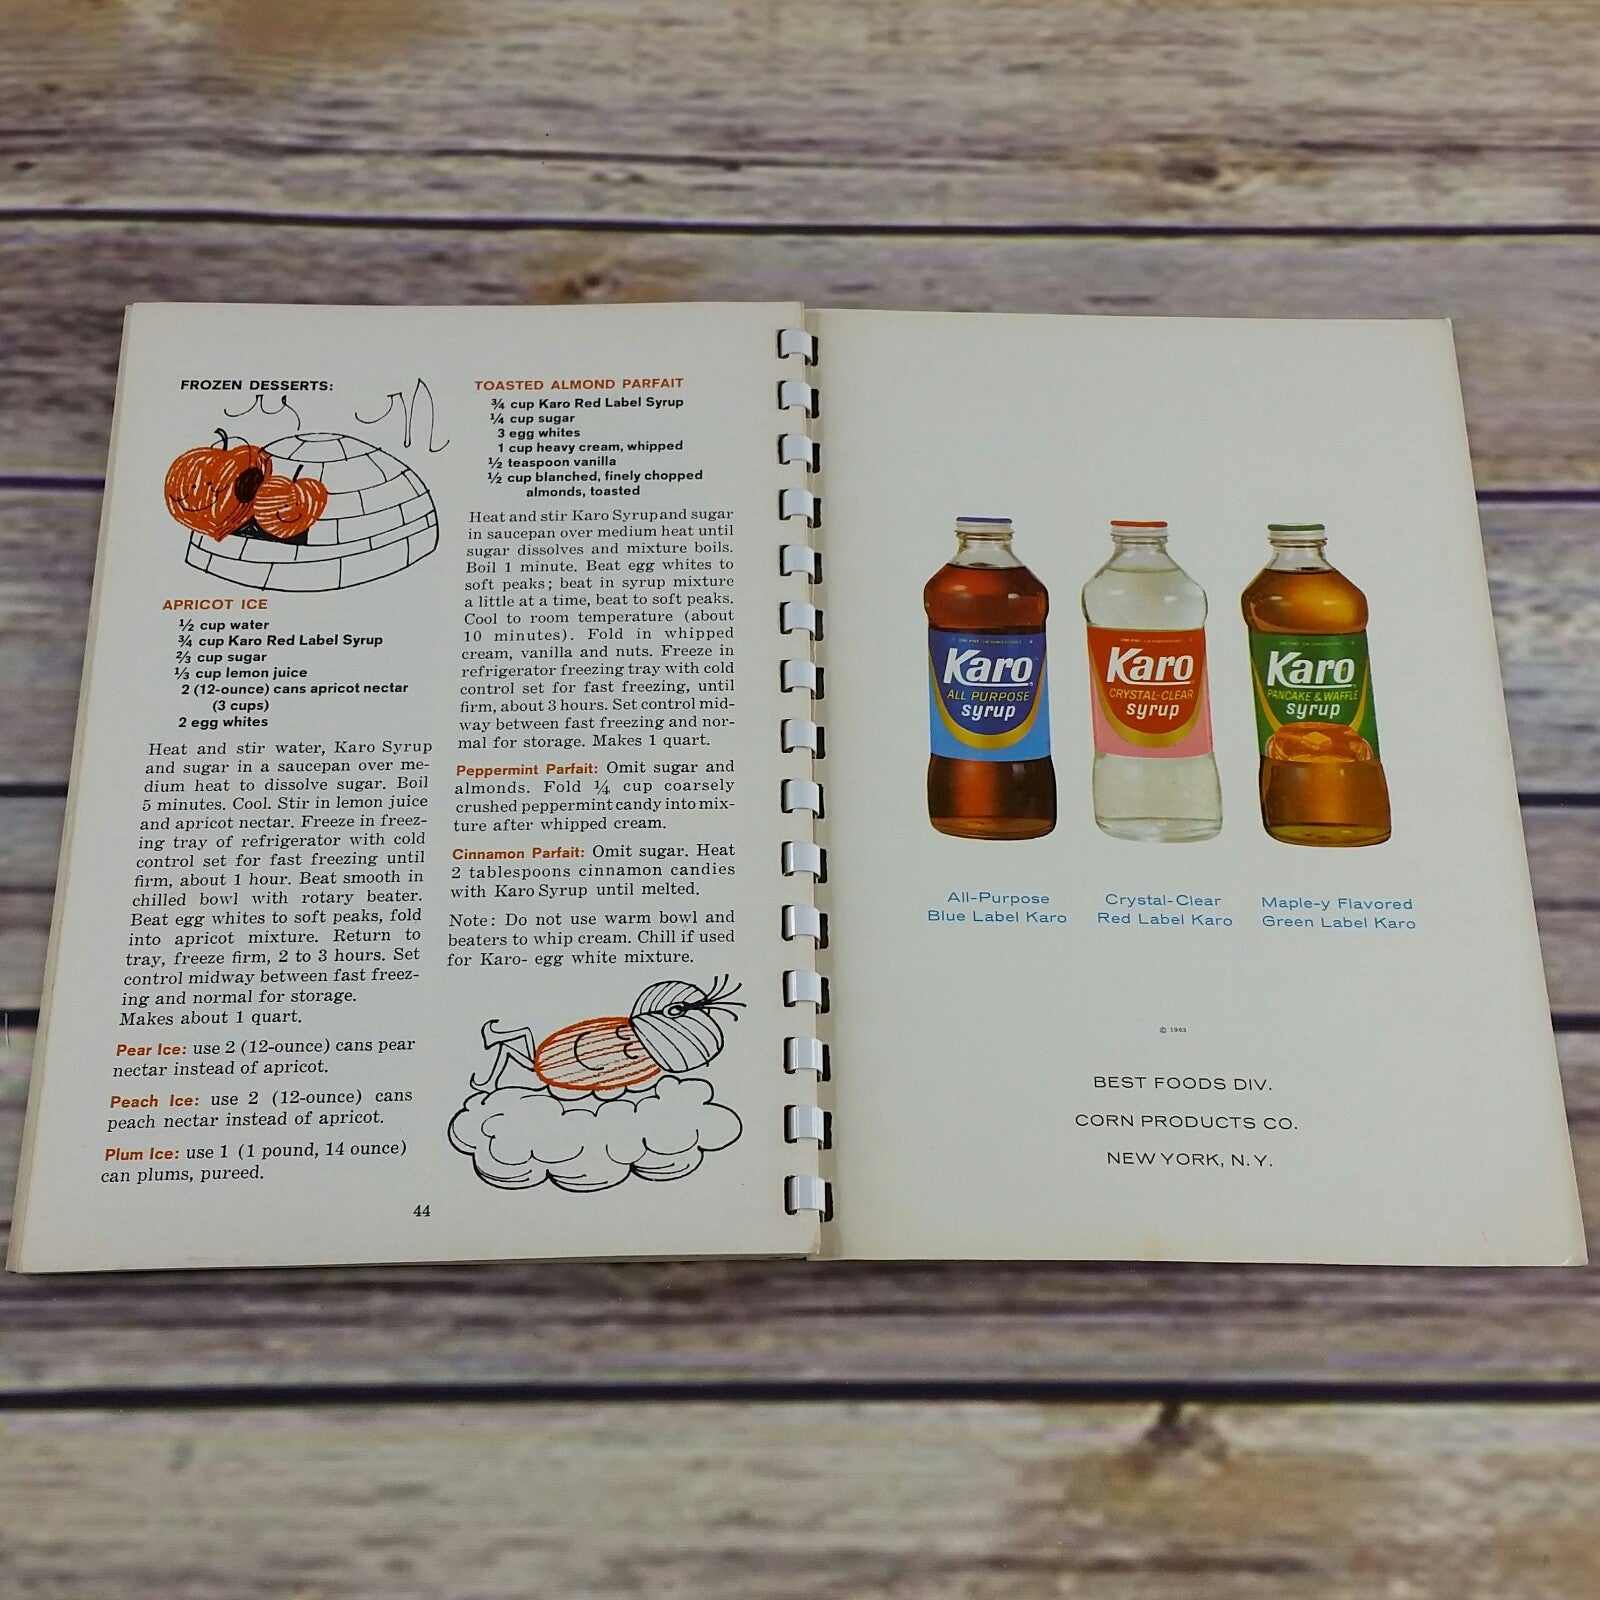 FROZEN DESSERTS:
APRICOT ICE
½ cup water
¾ cup Karo Red Label Syrup
⅔ cup sugar
⅓ cup lemon juice
2 (12-ounce) cans apricot nectar
(3 cups)
2 egg whites
Heat and stir water, Karo Syrup
and sugar in a saucepan over me-
dium heat to dissolve sugar. Boil
5 minutes. Cool. Stir in lemon juice
and apricot nectar. Freeze in freez-
ing tray of refrigerator with cold
control set for fast freezing until
firm, about 1 hour. Beat smooth in
chilled bowl with rotary beater.
Beat egg whites to soft peaks, fold
into apricot mixture. Return to
tray, freeze firm, 2 to 3 hours. Set
control midway between fast freez-
ing and normal for storage.
Makes about 1 quart.
Pear Ice: use 2 (12-ounce) cans pear
nectar instead of apricot.
Peach Ice: use 2 (12-ounce) cans
peach nectar instead of apricot.
Plum Ice: use 1 (1 pound, 14 ounce)
can plums, pureed.
TOASTED ALMOND PARFAIT
¾ cup Karo Red Label Syrup
¼ cup sugar
3 egg whites
1 cup heavy cream, whipped
½ teaspoon vanilla
½ cup blanched, finely chopped
almonds, toasted
Heat and stir Karo Syrup and sugar
in saucepan over medium heat until
sugar dissolves and mixture boils.
Boil 1 minute. Beat egg whites to
soft peaks; beat in syrup mixture
a little at a time, beat to soft peaks.
Cool to room temperature (about
10 minutes). Fold in whipped
cream, vanilla and nuts. Freeze in
refrigerator freezing tray with cold
control set for fast freezing, until
firm, about 3 hours. Set control mid-
way between fast freezing and nor-
mal for storage. Makes 1 quart.
Peppermint Parfait: Omit sugar and
almonds. Fold ¼ cup coarsely
crushed peppermint candy into mix-
ture after whipped cream.
Cinnamon Parfait: Omit sugar. Heat
2 tablespoons cinnamon candies
with Karo Syrup until melted.
Note: Do not use warm bowl and
beaters to whip cream. Chill if used
for Karo- egg white mixture.
44
Karo
ALL PURPOSE
syrup
Karo
CRYSTAL-CLEAR
syrup
Karo
PANCAKE & WAFFLE
syrup
All-Purpose
Blue Label Karo
Crystal-Clear
Red Label Karo
Maple-y Flavored
Green Label Karo
© 1963
BEST FOODS DIV.
CORN PRODUCTS CO.
NEW YORK, N.Y.